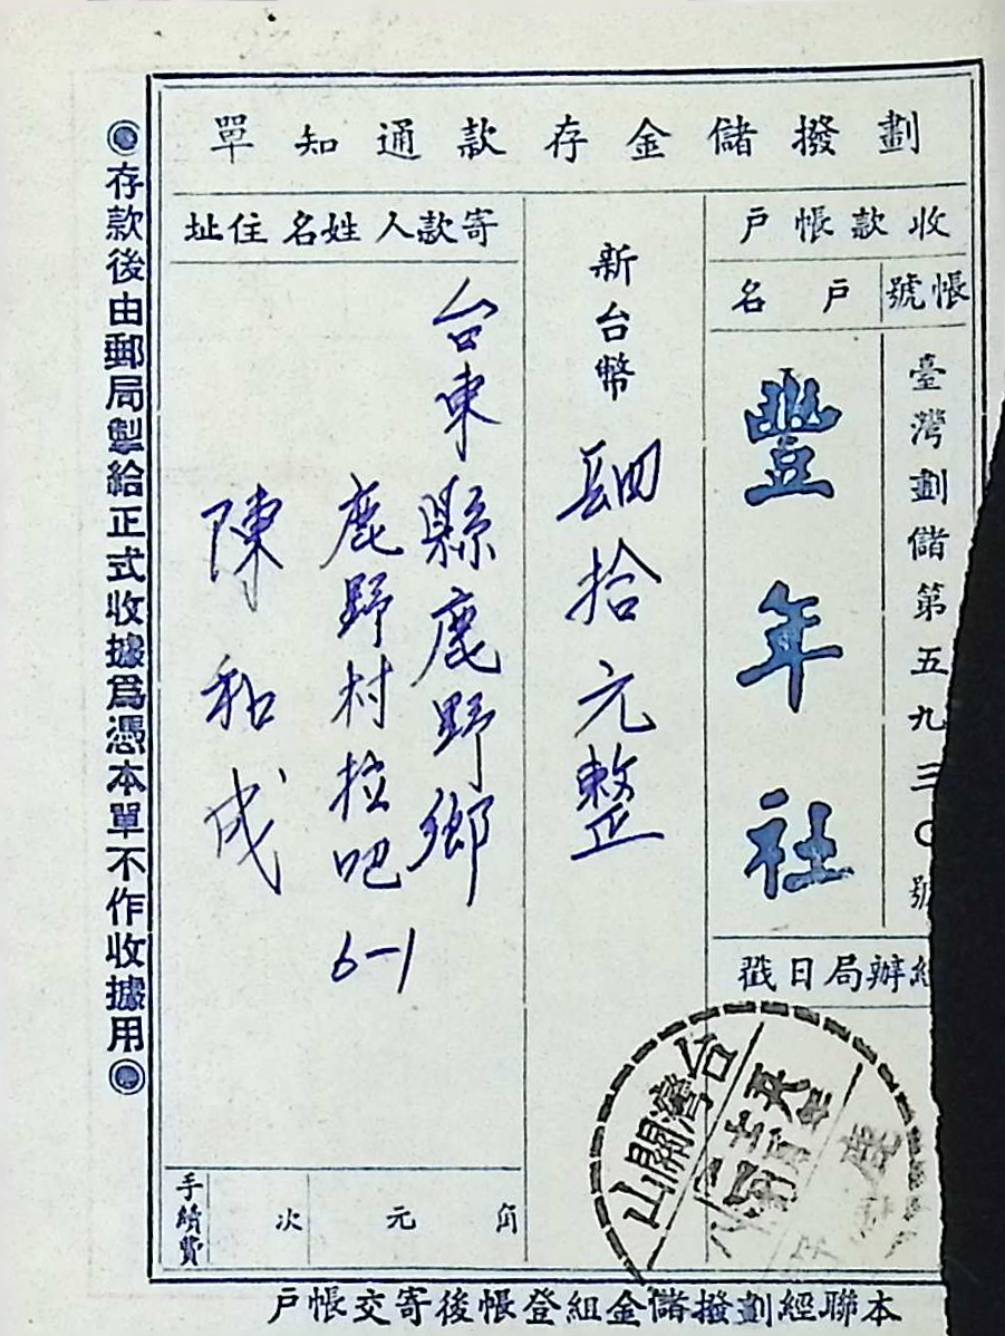 劃撥儲金存款通知單
收款帳戶
帳號
戶名
臺灣劃儲第五九三〇號
豐年社
新台幣 肆拾元整
寄款人姓名住址
台東縣鹿野鄉
鹿野村拉吧
6-1
陳和成
辦局日戳
台灣關山
手續費
次 元 角
◉存款後由郵局製給正式收據爲憑本單不作收據用◉
本聯經劃撥儲金組登帳後寄交帳戶